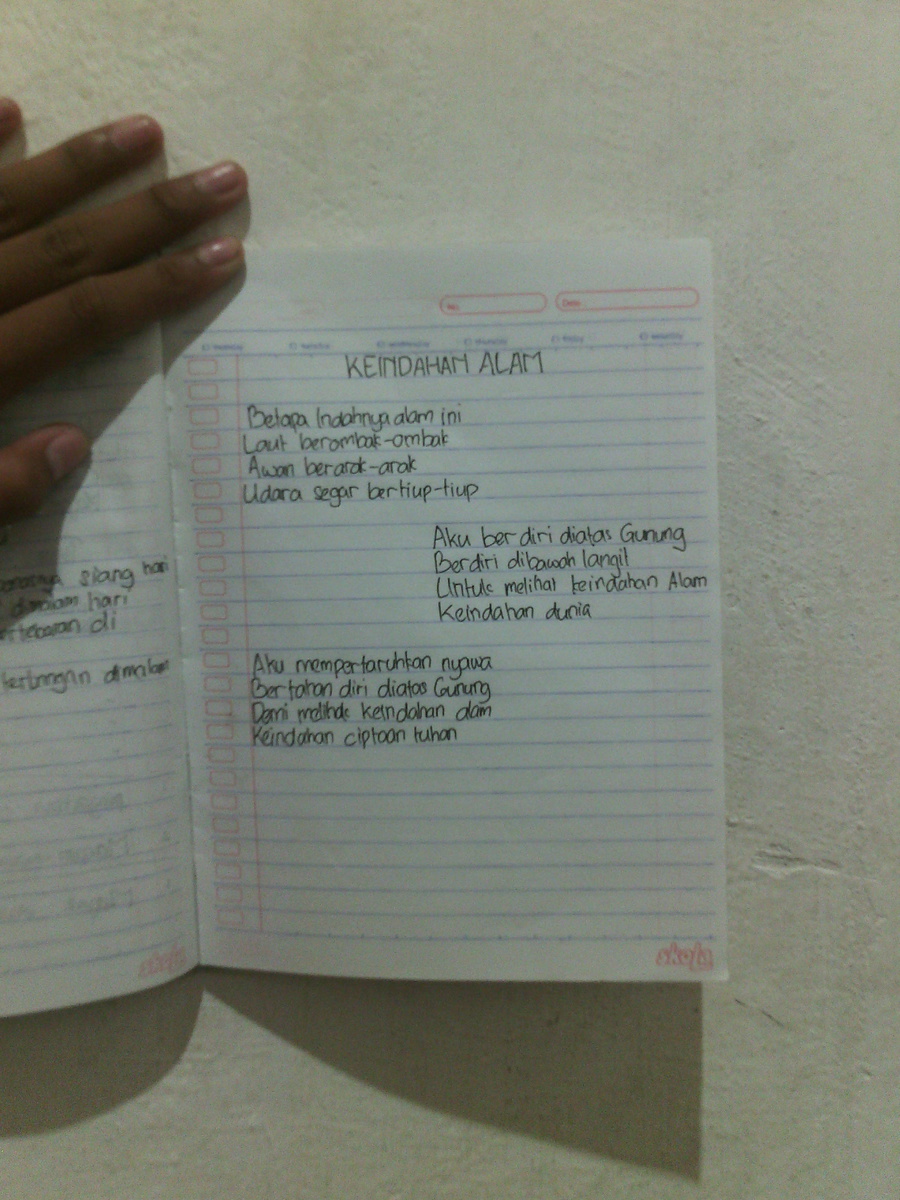 No.
Date
KEINDAHAN ALAM
Betapa Indahnya alam ini
Laut berombak-ombak
Awan berarak-arak
Udara segar bertiup-tiup
Aku berdiri diatas Gunung
Berdiri dibawah langit
Untuk melihat keindahan Alam
Keindahan dunia
Aku mempertaruhkan nyawa
Bertahan diri diatas Gunung
Demi melihat keindahan alam
Keindahan ciptaan tuhan
siang hari
dimalam hari
di
dimalam
skola